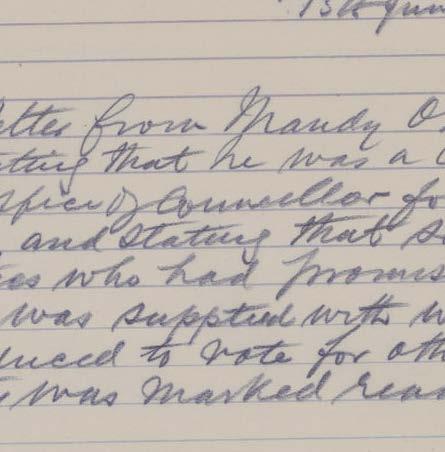 13th Jun
etter from Mandy O
ating that he was a C
ffice of Councillor fo
and stating that s
ies who had promis
was supplied with w
uced to vote for oth
was marked read